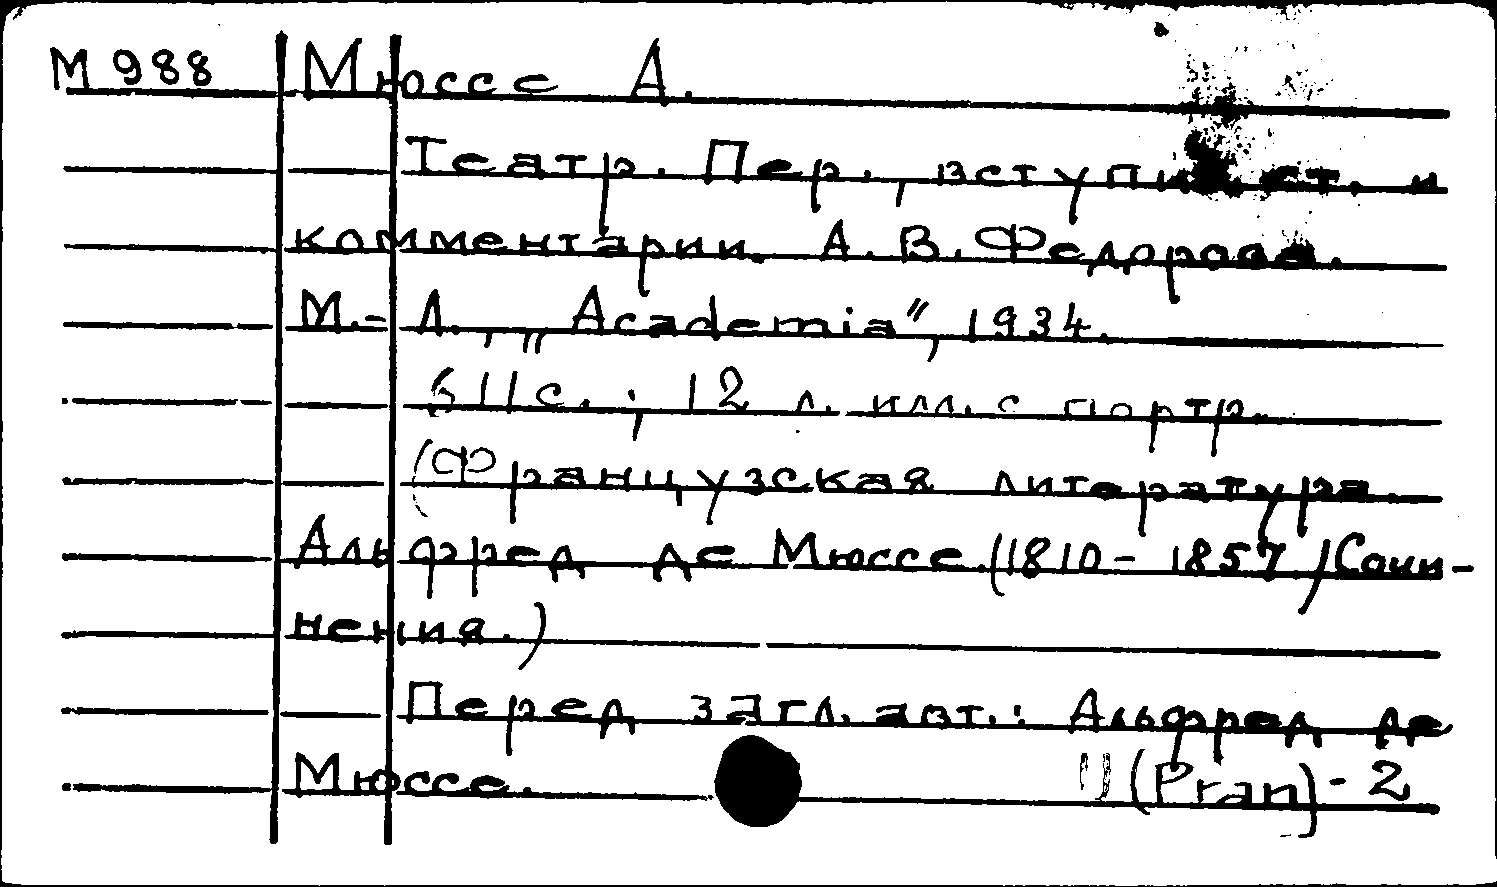 М 988 Мюссе А.
Театр. Пер., вступ. ст. и
комментарии. А. В. Федорова.
М.-Л., „Academia", 1934.
611с.; 12 л. илл. с портр.
(Французская литература.
Альфред де Мюссе.(1810-1857)Сочи-
нения.)
Перед загл. авт.: Альфред де
Мюссе. (Pran)-2